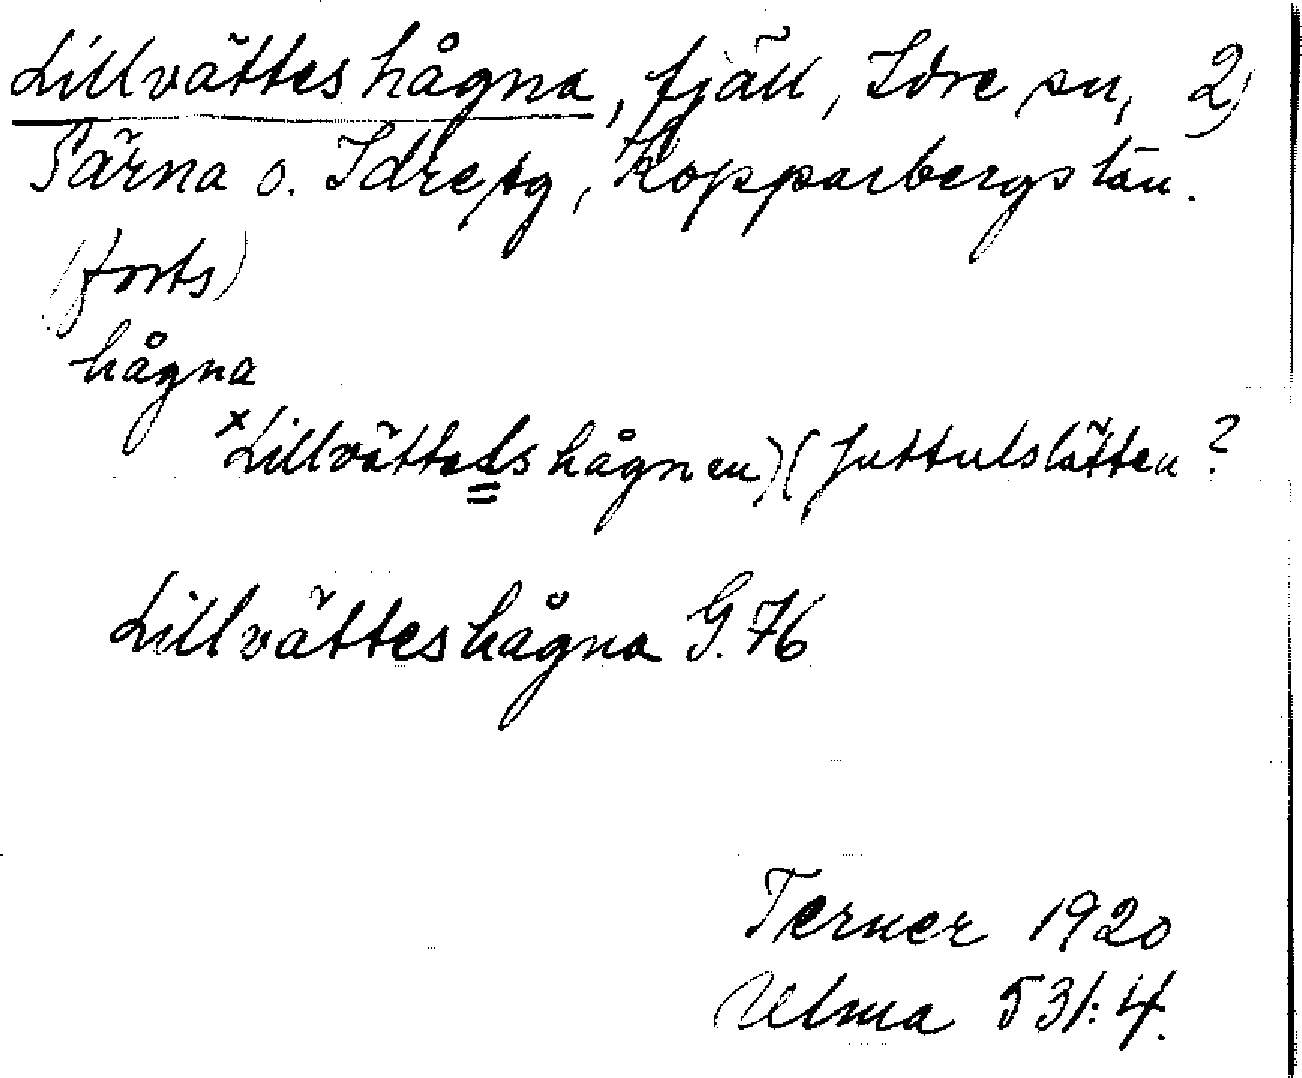 Lillvätteshågna, fjäll, Idre sn, 2)
Särna o. Idre tg, Kopparbergs län.
(forts)
hågna
xLillvättedshågnen)(Juttulslätten?
Lillvätteshågna G. 76
Terner 1920
Ulma 531:4.